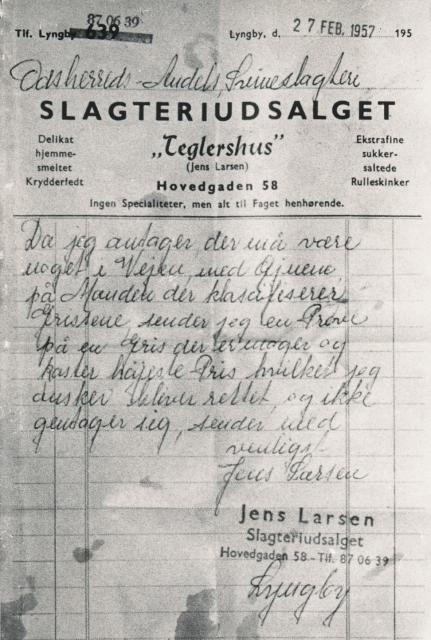 87 06 39
Tlf. Lyngby 639 Lyngby, d. 27 FEB. 1957 195
Odsherreds-Andels Svineslagteri
SLAGTERIUDSALGET
Delikat
hjemme-
smeltet
Krydderfedt
„Teglershus”
(Jens Larsen)
Hovedgaden 58
Ekstrafine
sukker-
saltede
Rulleskinker
Ingen Specialiteter, men alt til Faget henhørende.
Da jeg antager der må være
noget i Vejen med Øjnene
på Manden der klasifiserer
Grissene, sender jeg en Prøve
på en Gris der er mager og
koster højeste Pris hvilket jeg
ønsker bliver rettet, og ikke
gentager sig, sender med
venligst
Jens Larsen
Jens Larsen
Slagteriudsalget
Hovedgaden 58 - Tlf. 87 06 39
Lyngby